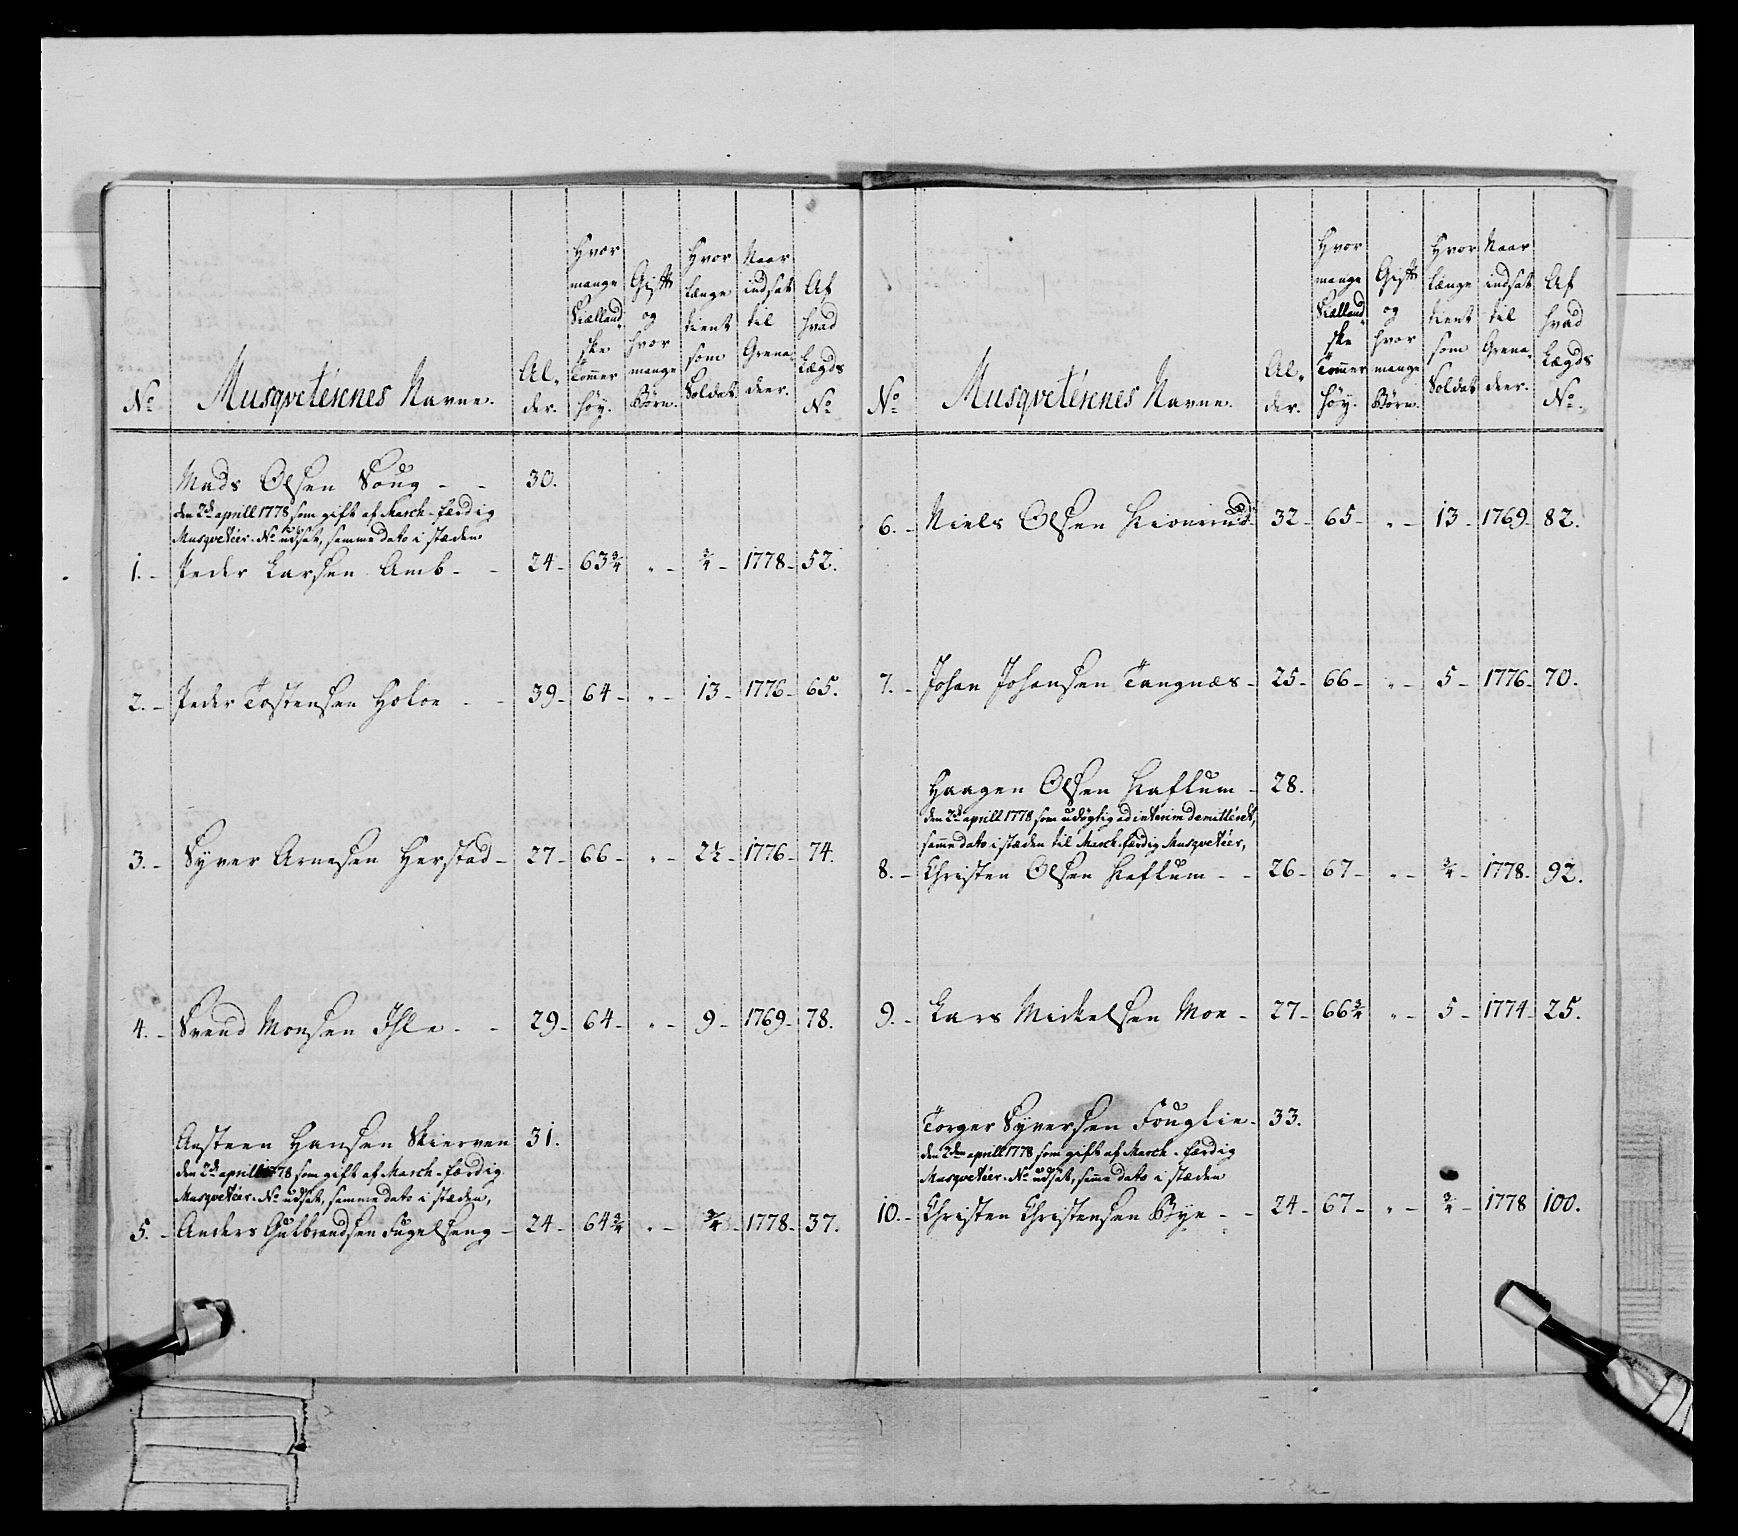 No
Musqveterernes Navne.
Al-
der.
Hvor
mange
Siælland-
ske
Tommer
høy.
Gift
og
hvor
mange
Børn.
Hvor
længe
tient
som
Soldat
Naar
indsat
til
Grena-
deer.
Af
hvad
Lægds
No
Mads Olsen Soug - - 30.
den 2de aprill 1778 som gift af March-færdig
Musqvetéer-No udsat, samme dato i stæden
1. - Peder Larsen Amb - - 24 - 63¾ " - ¾ - 1778 - 52.
2. - Peder Tostensen Holoe - - 39 - 64 - " - 13 - 1776 - 65.
3. - Syver Arnesen Herstad - 27 - 66 - " - 2½ - 1776 - 74.
4. - Svend Monsen Ihle - - 29 - 64 - " - 9 - 1769 - 78.
Aasteen Hansen Skierven 31.
den 2de aprill 1778 som gift af March-færdig
Musqvetéer-No udsat, samme dato i stæden,
5. - Anders Gulbrandsen Fugelseng - 24 - 64¾ " - ¾ - 1778 - 37.
No
Musqveterernes Navne.
Al-
der.
Hvor
mange
Siælland-
ske
Tommer
høy.
Gift
og
hvor
mange
Børn.
Hvor
længe
tient
som
Soldat
Naar
indsat
til
Grena-
deer.
Af
hvad
Lægds
No
6. - Niels Olsen 32 - 65 - " - 13 - 1769 - 82.
7. - Johan Johansen Tangnæs - 25 - 66 - " - 5 - 1776 - 70.
Haagen Olsen Kaflum - 28.
den 2de aprill 1778 som udøgtig ad interim demitteret,
samme dato i stæden til March-færdig Musqvetéer,
8. - Christen Olsen Kaflum - - 26 - 67 - " - ¾ - 1778 - 92.
9. - Lars Mickelsen Moe - 27 - 66¾ " - 5 - 1774 - 25.
Torger Syversen Fouglie - 33.
den 2den aprill 1778 som gift af March-færdig
Musqvetéer-No udsat, samme dato i stæden
10. - Christen Christensen Bye - - 24 - 67 - " - ¾ - 1778 100.